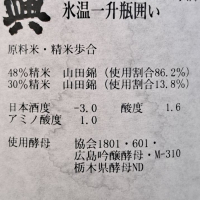 興
氷温一升瓶囲い
原料米・精米歩合
48%精米 山田錦（使用割合86.2%）
30%精米 山田錦（使用割合13.8%）
日本酒度 -3.0 酸度 1.6
アミノ酸度 1.0
使用酵母 協会1801・601・
広島吟醸酵母・M-310
栃木県酵母ND